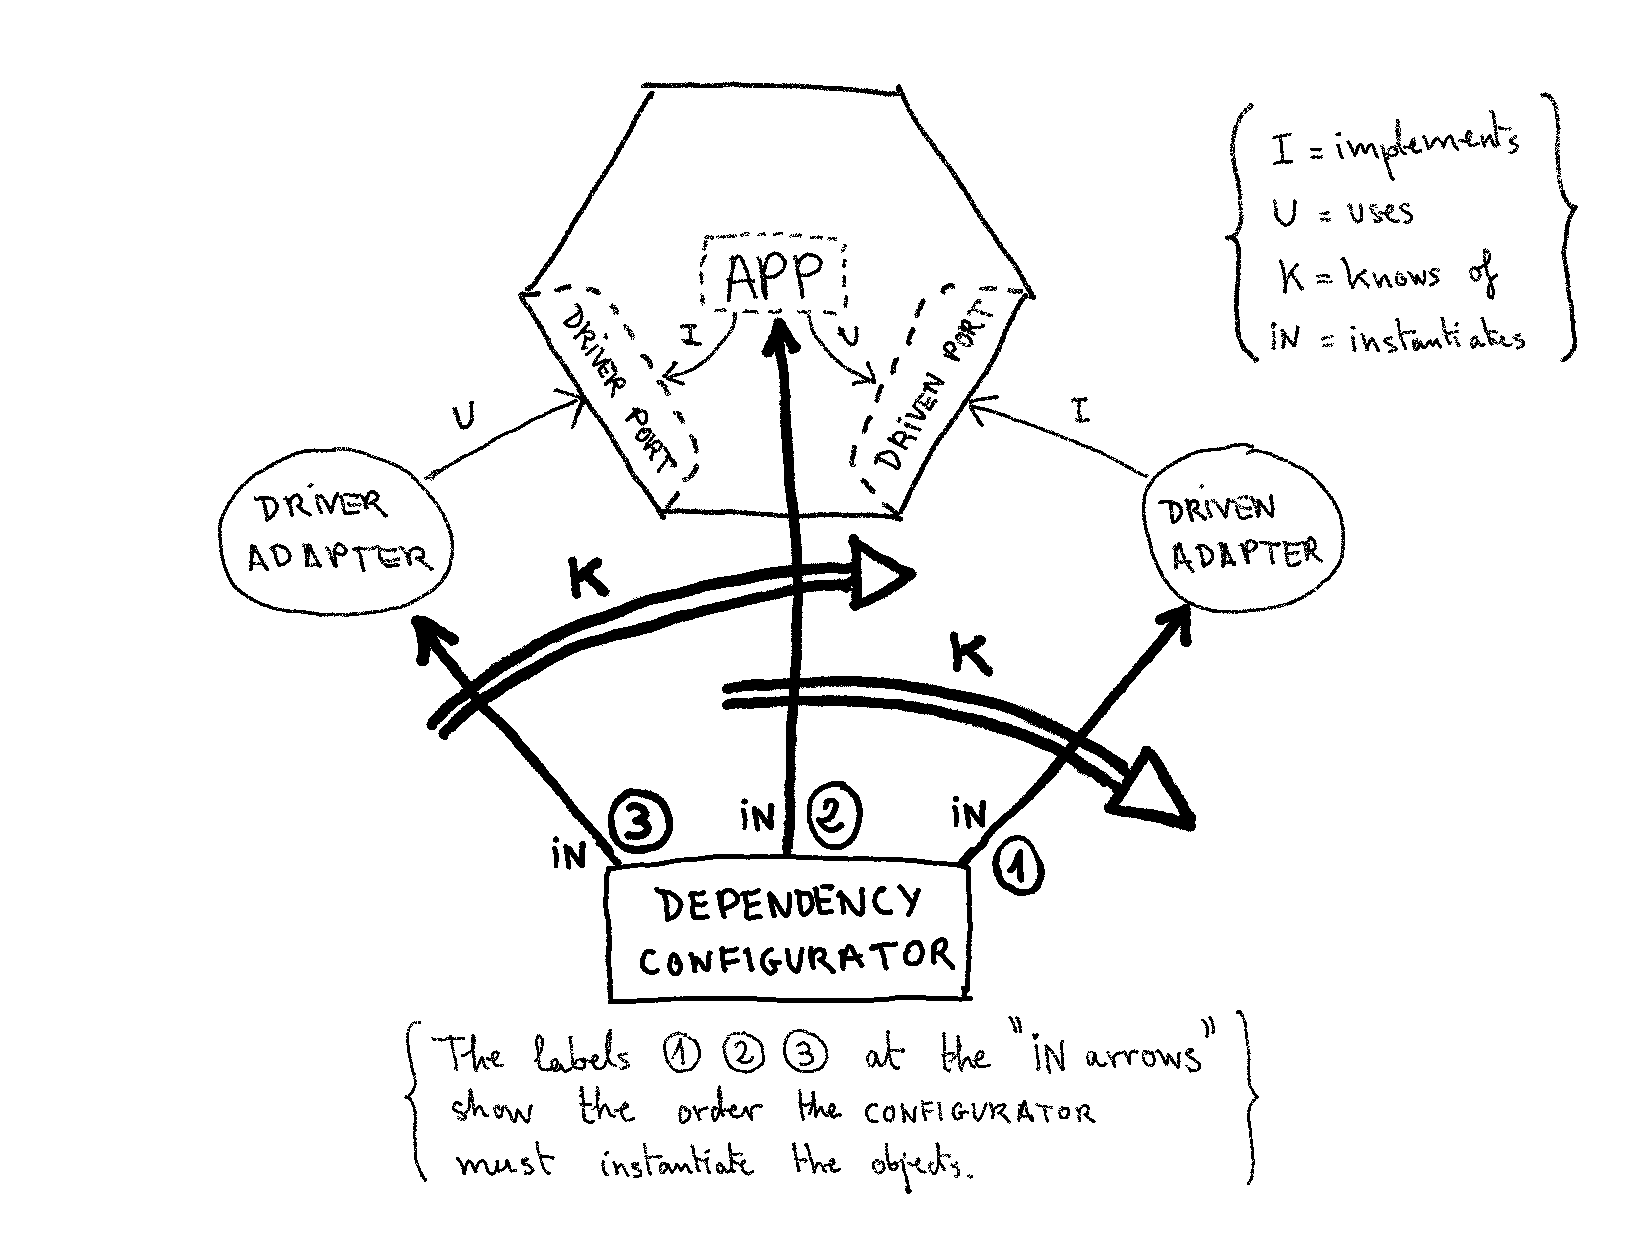 I = implements
U = uses
K = knows of
iN = instantiates
APP
I
U
DRiVER PORT
DRiVEN PORT
U
I
DRiVER
ADAPTER
DRiVEN
ADAPTER
K
K
iN
③
iN
②
iN
①
DEPENDENCY
CONFIGURATOR
The labels ① ② ③ at the "iN arrows"
show the order the CONFIGURATOR
must instantiate the objects.